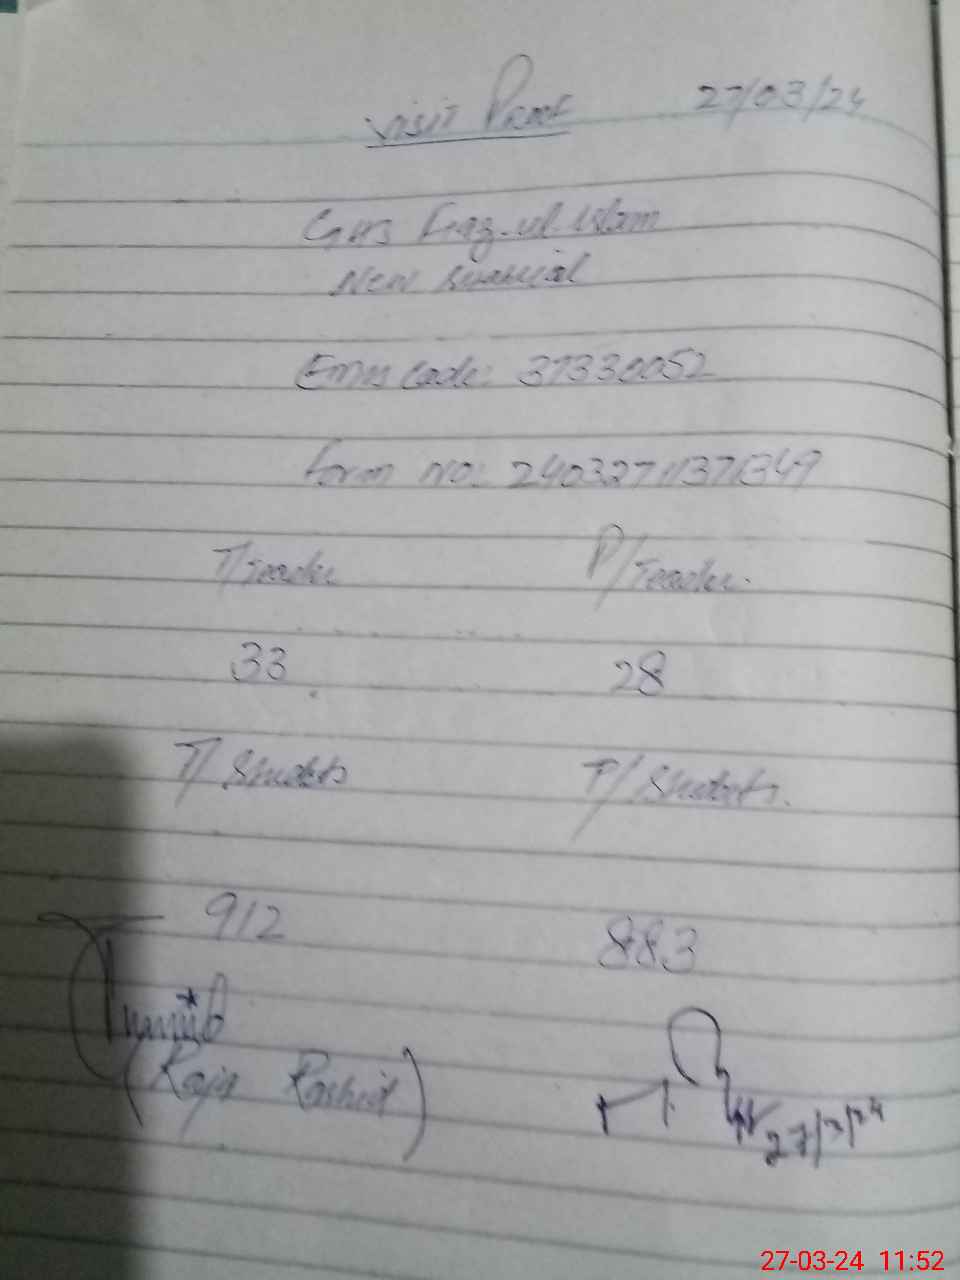 Visit Proof 27/03/24
GHS Faiz-ul-Islam
New
Emis code: 37330052
Form no: 2403271371349
T/Teacher P/Teacher.
33 28
T/Students P/Students.
912 883
(Raja Rashid)
27/3/24
27-03-24 11:52